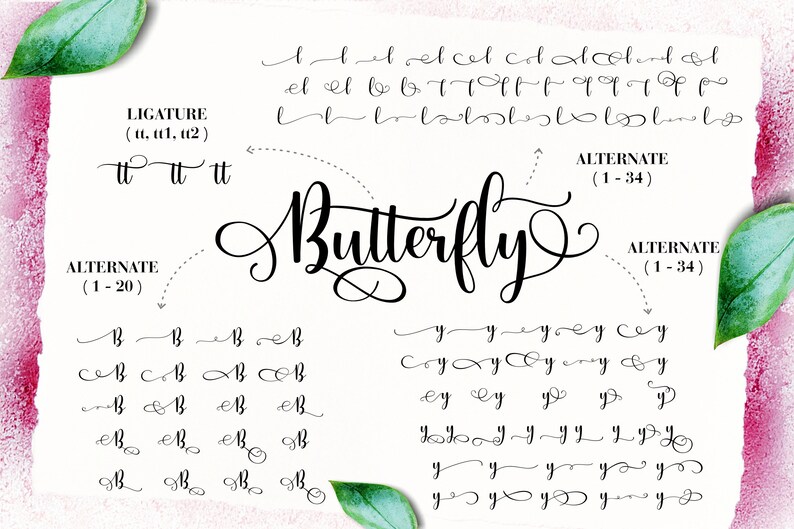 LIGATURE
( tt, tt1, tt2 )
tt tt tt
ALTERNATE
( 1 - 34 )
Butterfly
ALTERNATE
( 1 - 20 )
ALTERNATE
( 1 - 34 )
B B B B
B B B B
B B B B
B B B B
B B B B
y y y y y
y y y y y
y y y y y
y y y y y y y y y
y y y y y
y y y y y